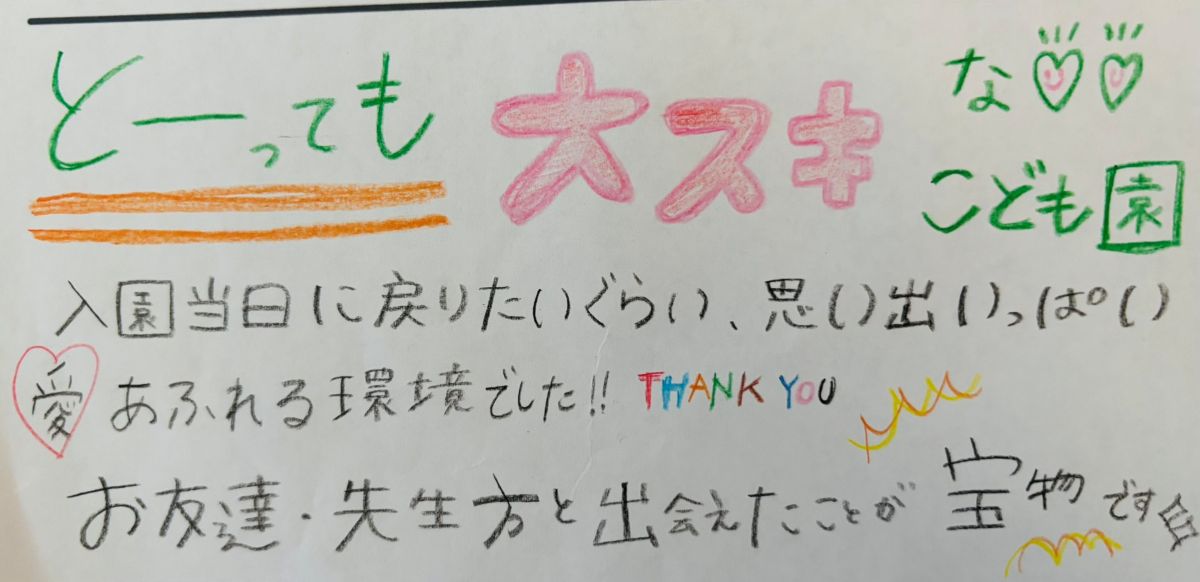 とーっても大スキな
こども園
入園当日に戻りたいぐらい、思い出いっぱい
愛あふれる環境でした!! THANK YOU
お友達・先生方と出会えたことが宝物です